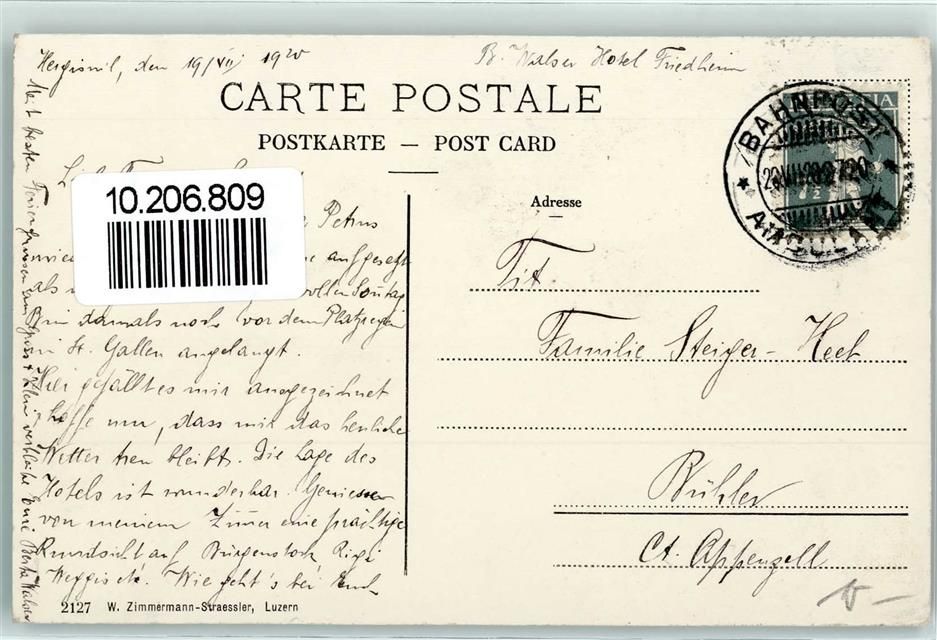 Hergiswil, den 19/VII 1920
B. Walser Hotel Friedheim
CARTE POSTALE
POSTKARTE — POST CARD
10.206.809
BAHNPOST
AMBULANT
Adresse
Petrus
aufgesetzt
als
vollen Sontag
Bin damals noch vor dem Platzregen
in St. Gallen angelangt.
Hier gefällt es mir ausgezeichnet
hoffe nur, dass mir das herrliche
Wetter treu bleibt. Die Lage des
Hotels ist wunderbar. Geniesse
von meinem Zimer eine prächtige
Rundsicht auf Bürgenstock, Rigi
Weggis etc. Wie geht's bei Euch
Mit besten Feriengrüssen verbleibe Eure Berta Walser
Tit.
Familie Steiger-
Bühler
Ct. Appenzell
2127 W. Zimmermann-Straessler, Luzern